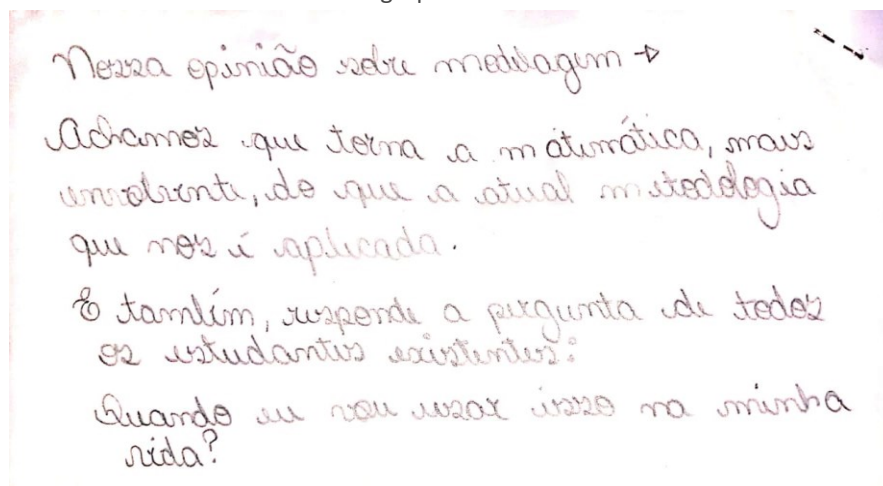 Nossa opinião sobre modelagem →
Achamos que torna a matemática, mais
envolvente, do que a atual metodologia
que nos é aplicada.
E também, responde a pergunta de todos
os estudantes existentes:
Quando eu vou usar isso na minha
vida?